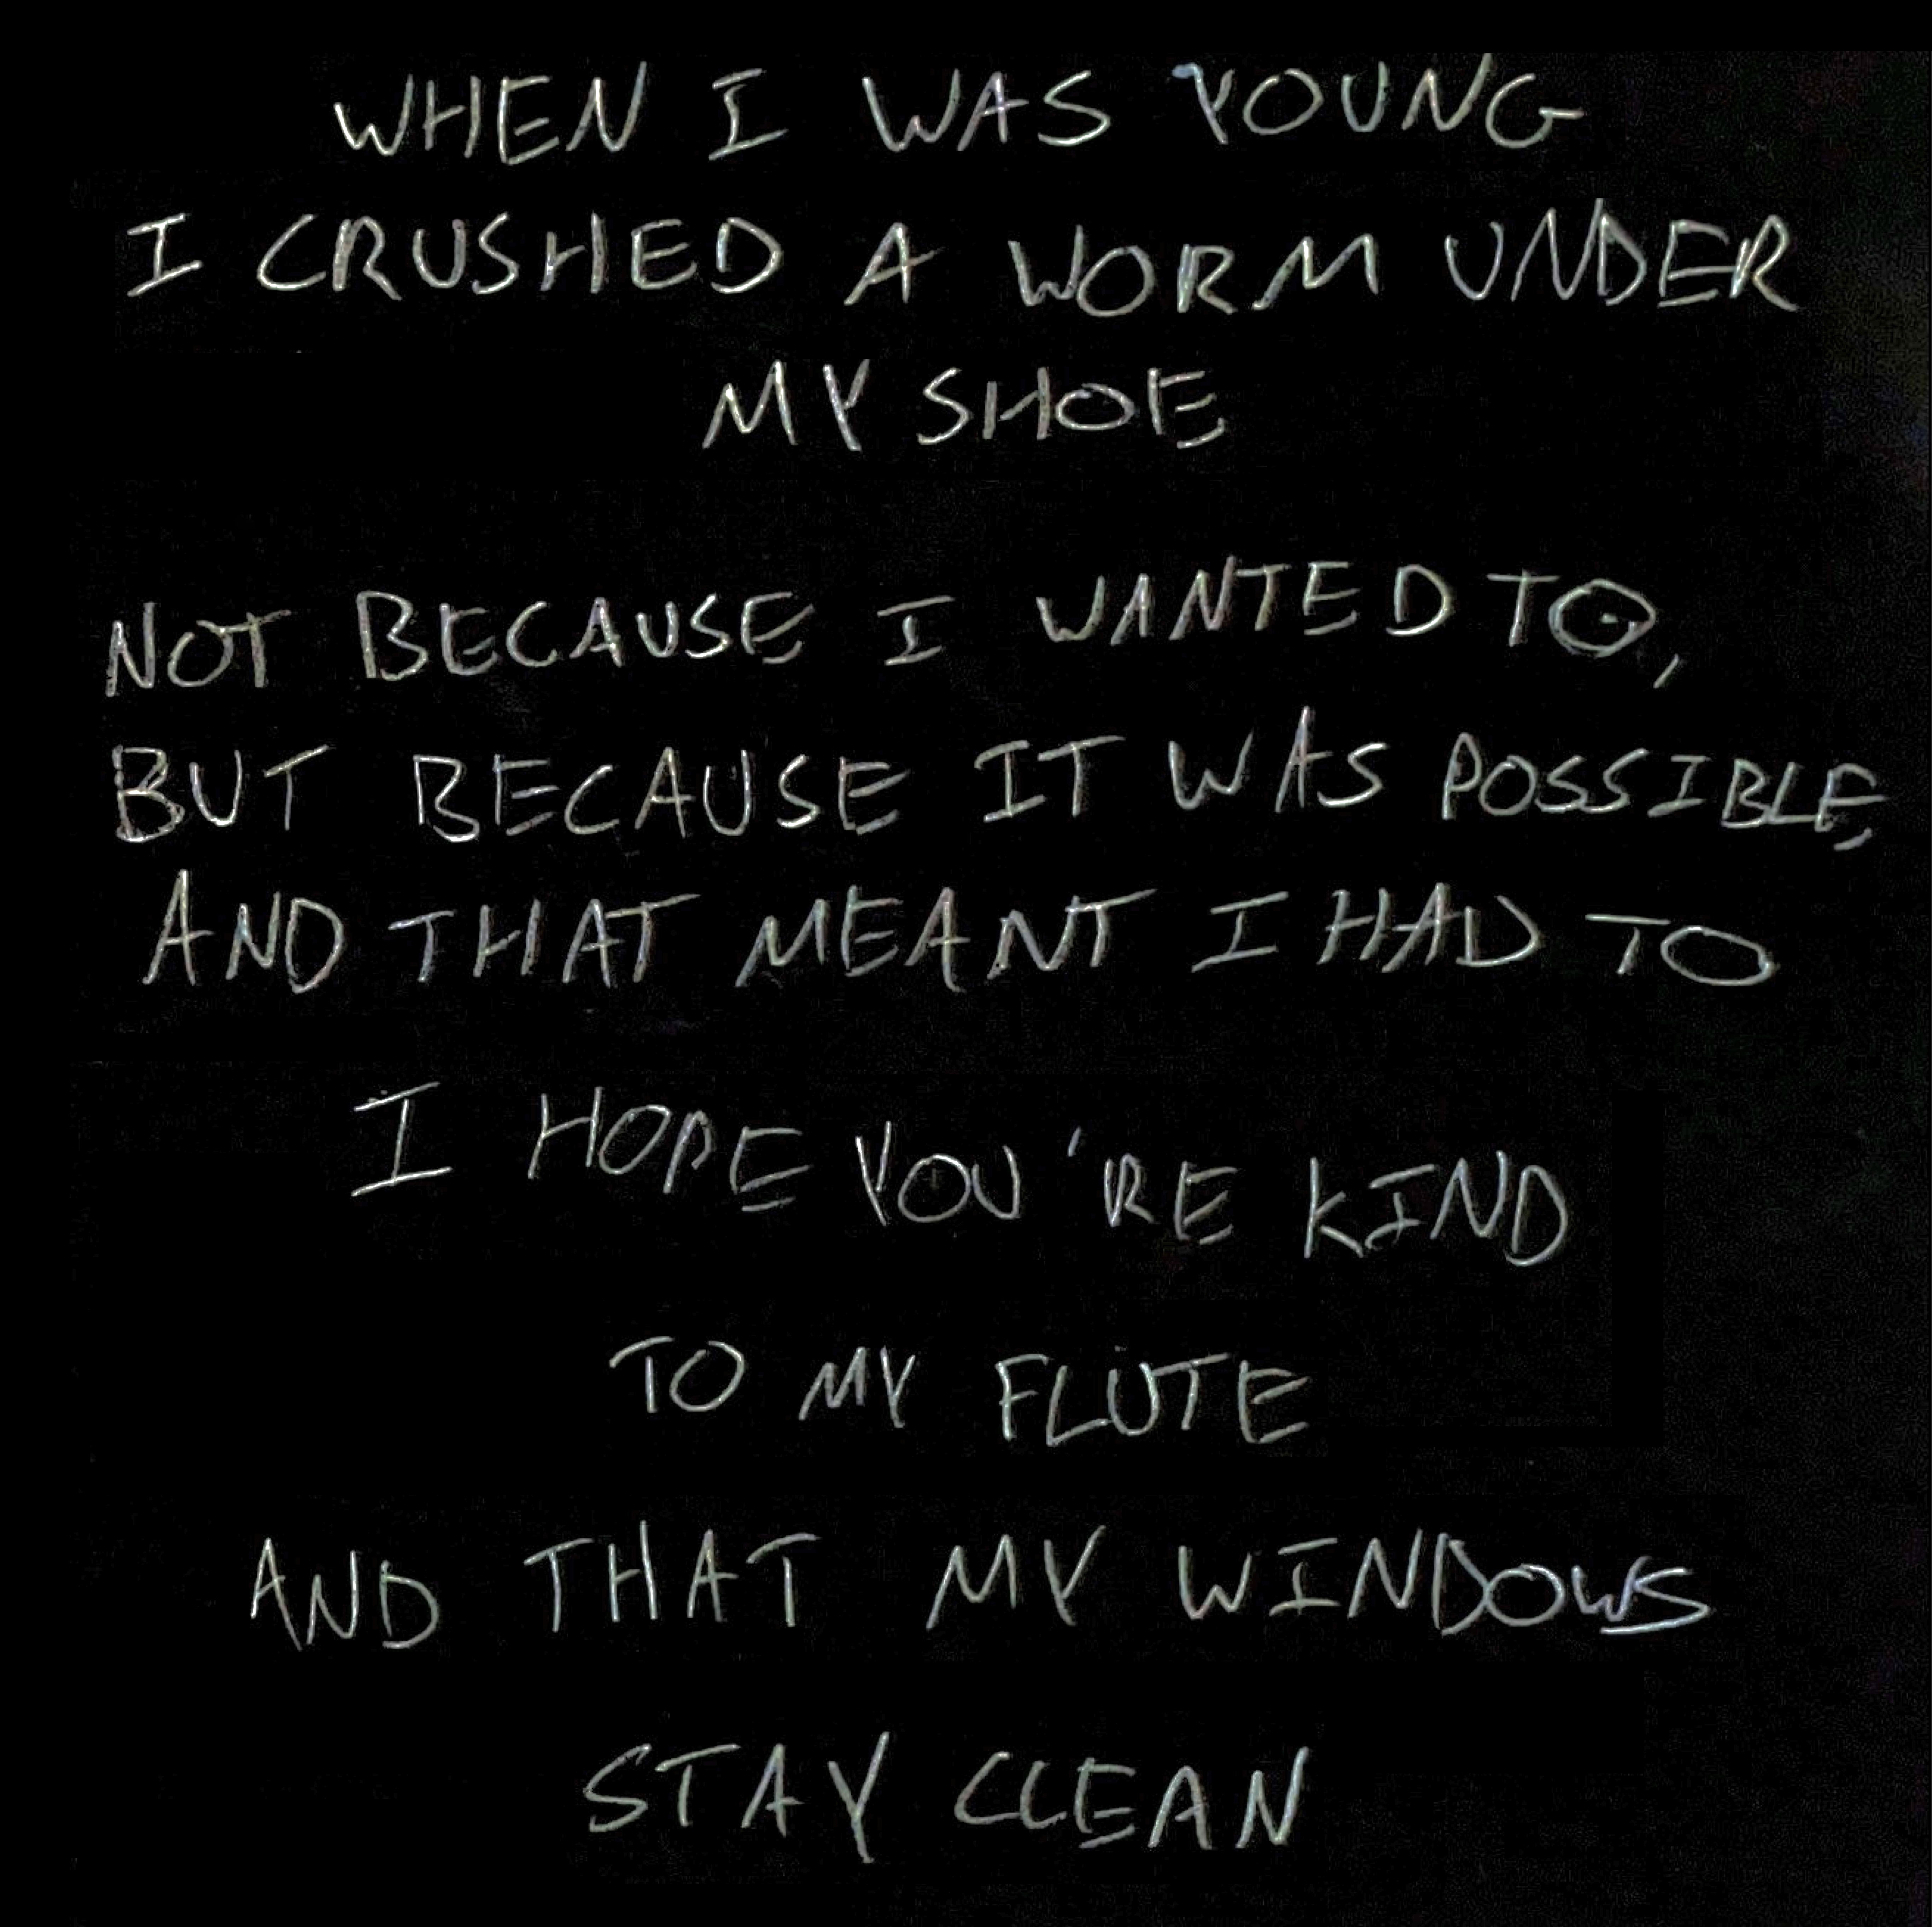 WHEN I WAS YOUNG
I CRUSHED A WORM UNDER
MY SHOE
NOT BECAUSE I WANTED TO,
BUT BECAUSE IT WAS POSSIBLE,
AND THAT MEANT I HAD TO
I HOPE YOU'RE KIND
TO MY FLUTE
AND THAT MY WINDOWS
STAY CLEAN